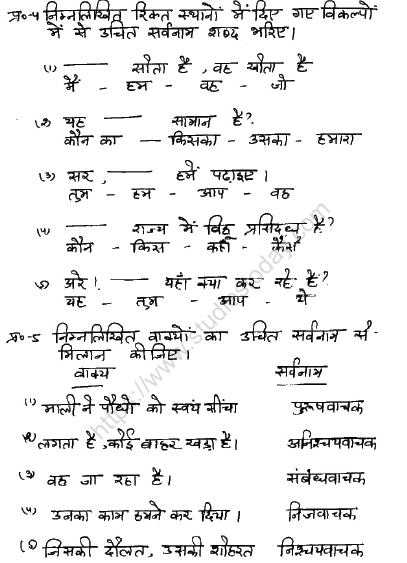 प्र०-4 निम्नलिखित रिक्त स्थानों में दिए गए विकल्पों
में से उचित सर्वनाम शब्द भरिए।
(1) ——— सोता है, वह खोता है
मैं - हम - वह - जो
(2) यह ——— सामान है?
कौन का — किसका - उसका - हमारा
(3) सर, ——— हमें पढ़ाइए।
तुम - हम - आप - वह
(4) ——— राज्य में बिहू प्रसिद्ध है?
कौन - किस - कहाँ - कैसे
5) अरे! ——— यहाँ क्या कर रहे है?
यह - तुम - आप - ये
प्र०-5 निम्नलिखित वाक्यों का उचित सर्वनाम से
मिलान कीजिए।
वाक्य सर्वनाम
(1) माली ने पौधों को स्वयं सींचा पुरूषवाचक
(2) लगता है, कोई बाहर खड़ा है। अनिश्चयवाचक
(3) वह जा रहा है। संबंधवाचक
(4) उनका काम हमने कर दिया। निजवाचक
(5) जिसकी दौलत, उसकी शोहरत निश्चयवाचक
https://www.studiestoday.com